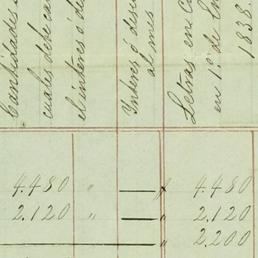 Cantidades
cuales debe ca
el interes ó de
Interes ó desc
al mes
Letras en Ca
en 1º de En
1838.
4.480 " — " 4.480
2.120 " — " 2.120
2.200